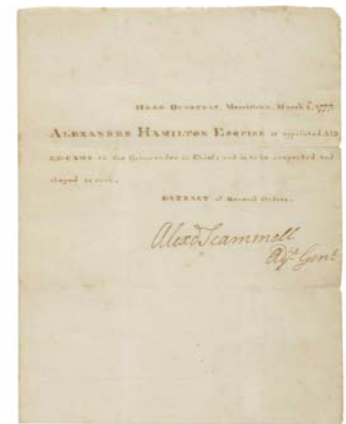 HEAD QUARTERS, Morristown, March 1, 1777.
ALEXANDER HAMILTON ESQUIRE is appointed AID
DE-CAMP to the Commander in Chief; and is to be respected and
obeyed as such.
EXTRACT of General Orders.
Alexd. Scammell
Adjt. Genl.